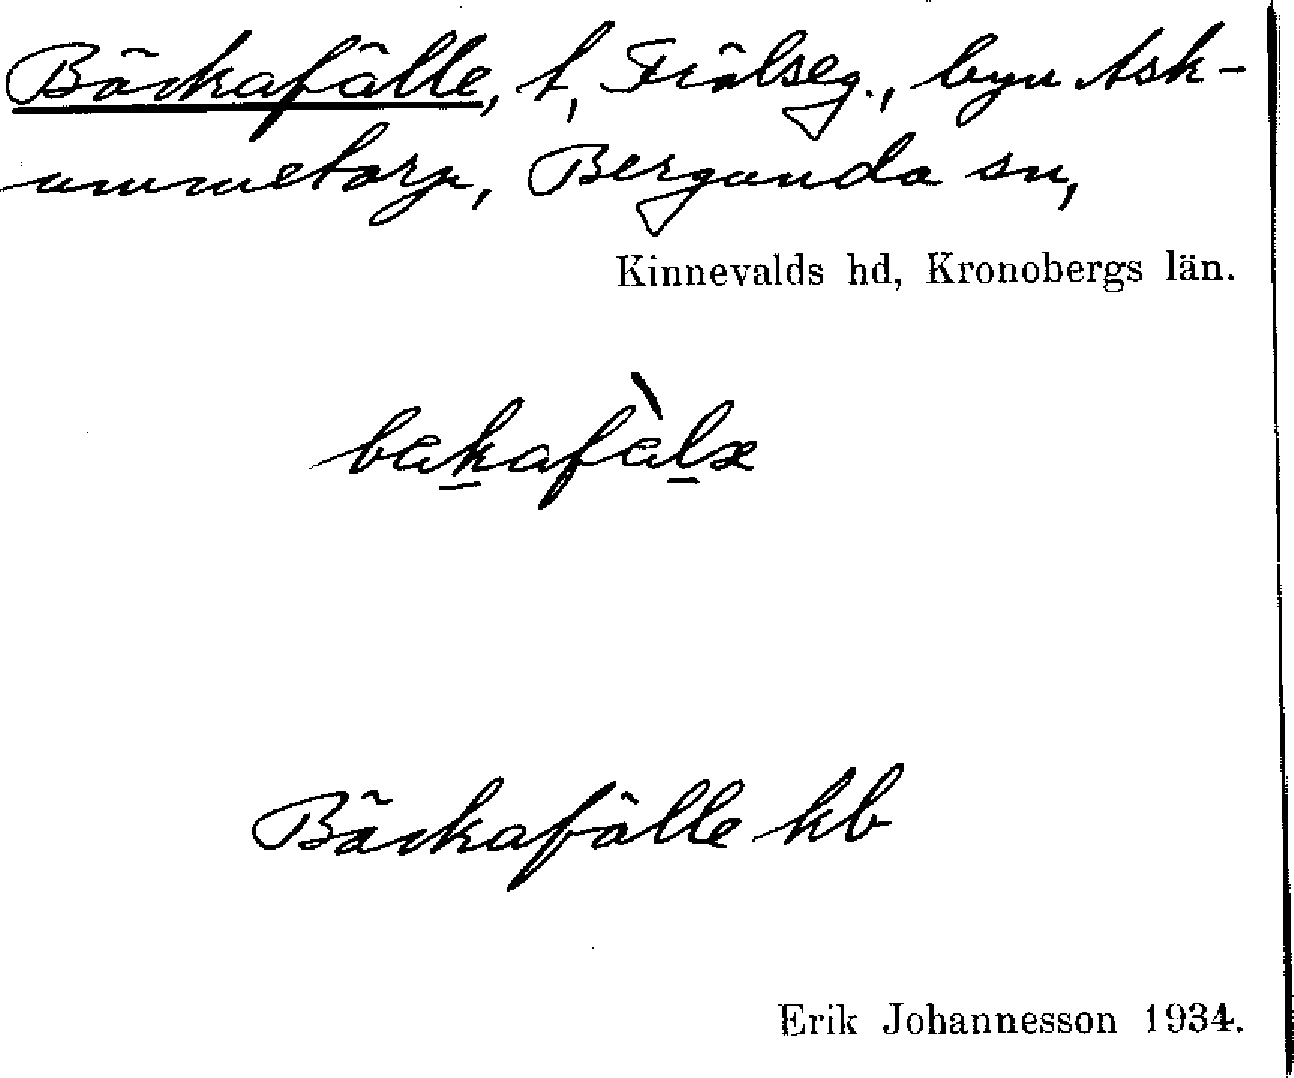 Bäckafälle, t, Frälseg., byn Ask-
ummetorp, Bergunda sn,
Kinnevalds hd, Kronobergs län.
Bäckafälle kb
Erik Johannesson 1934.